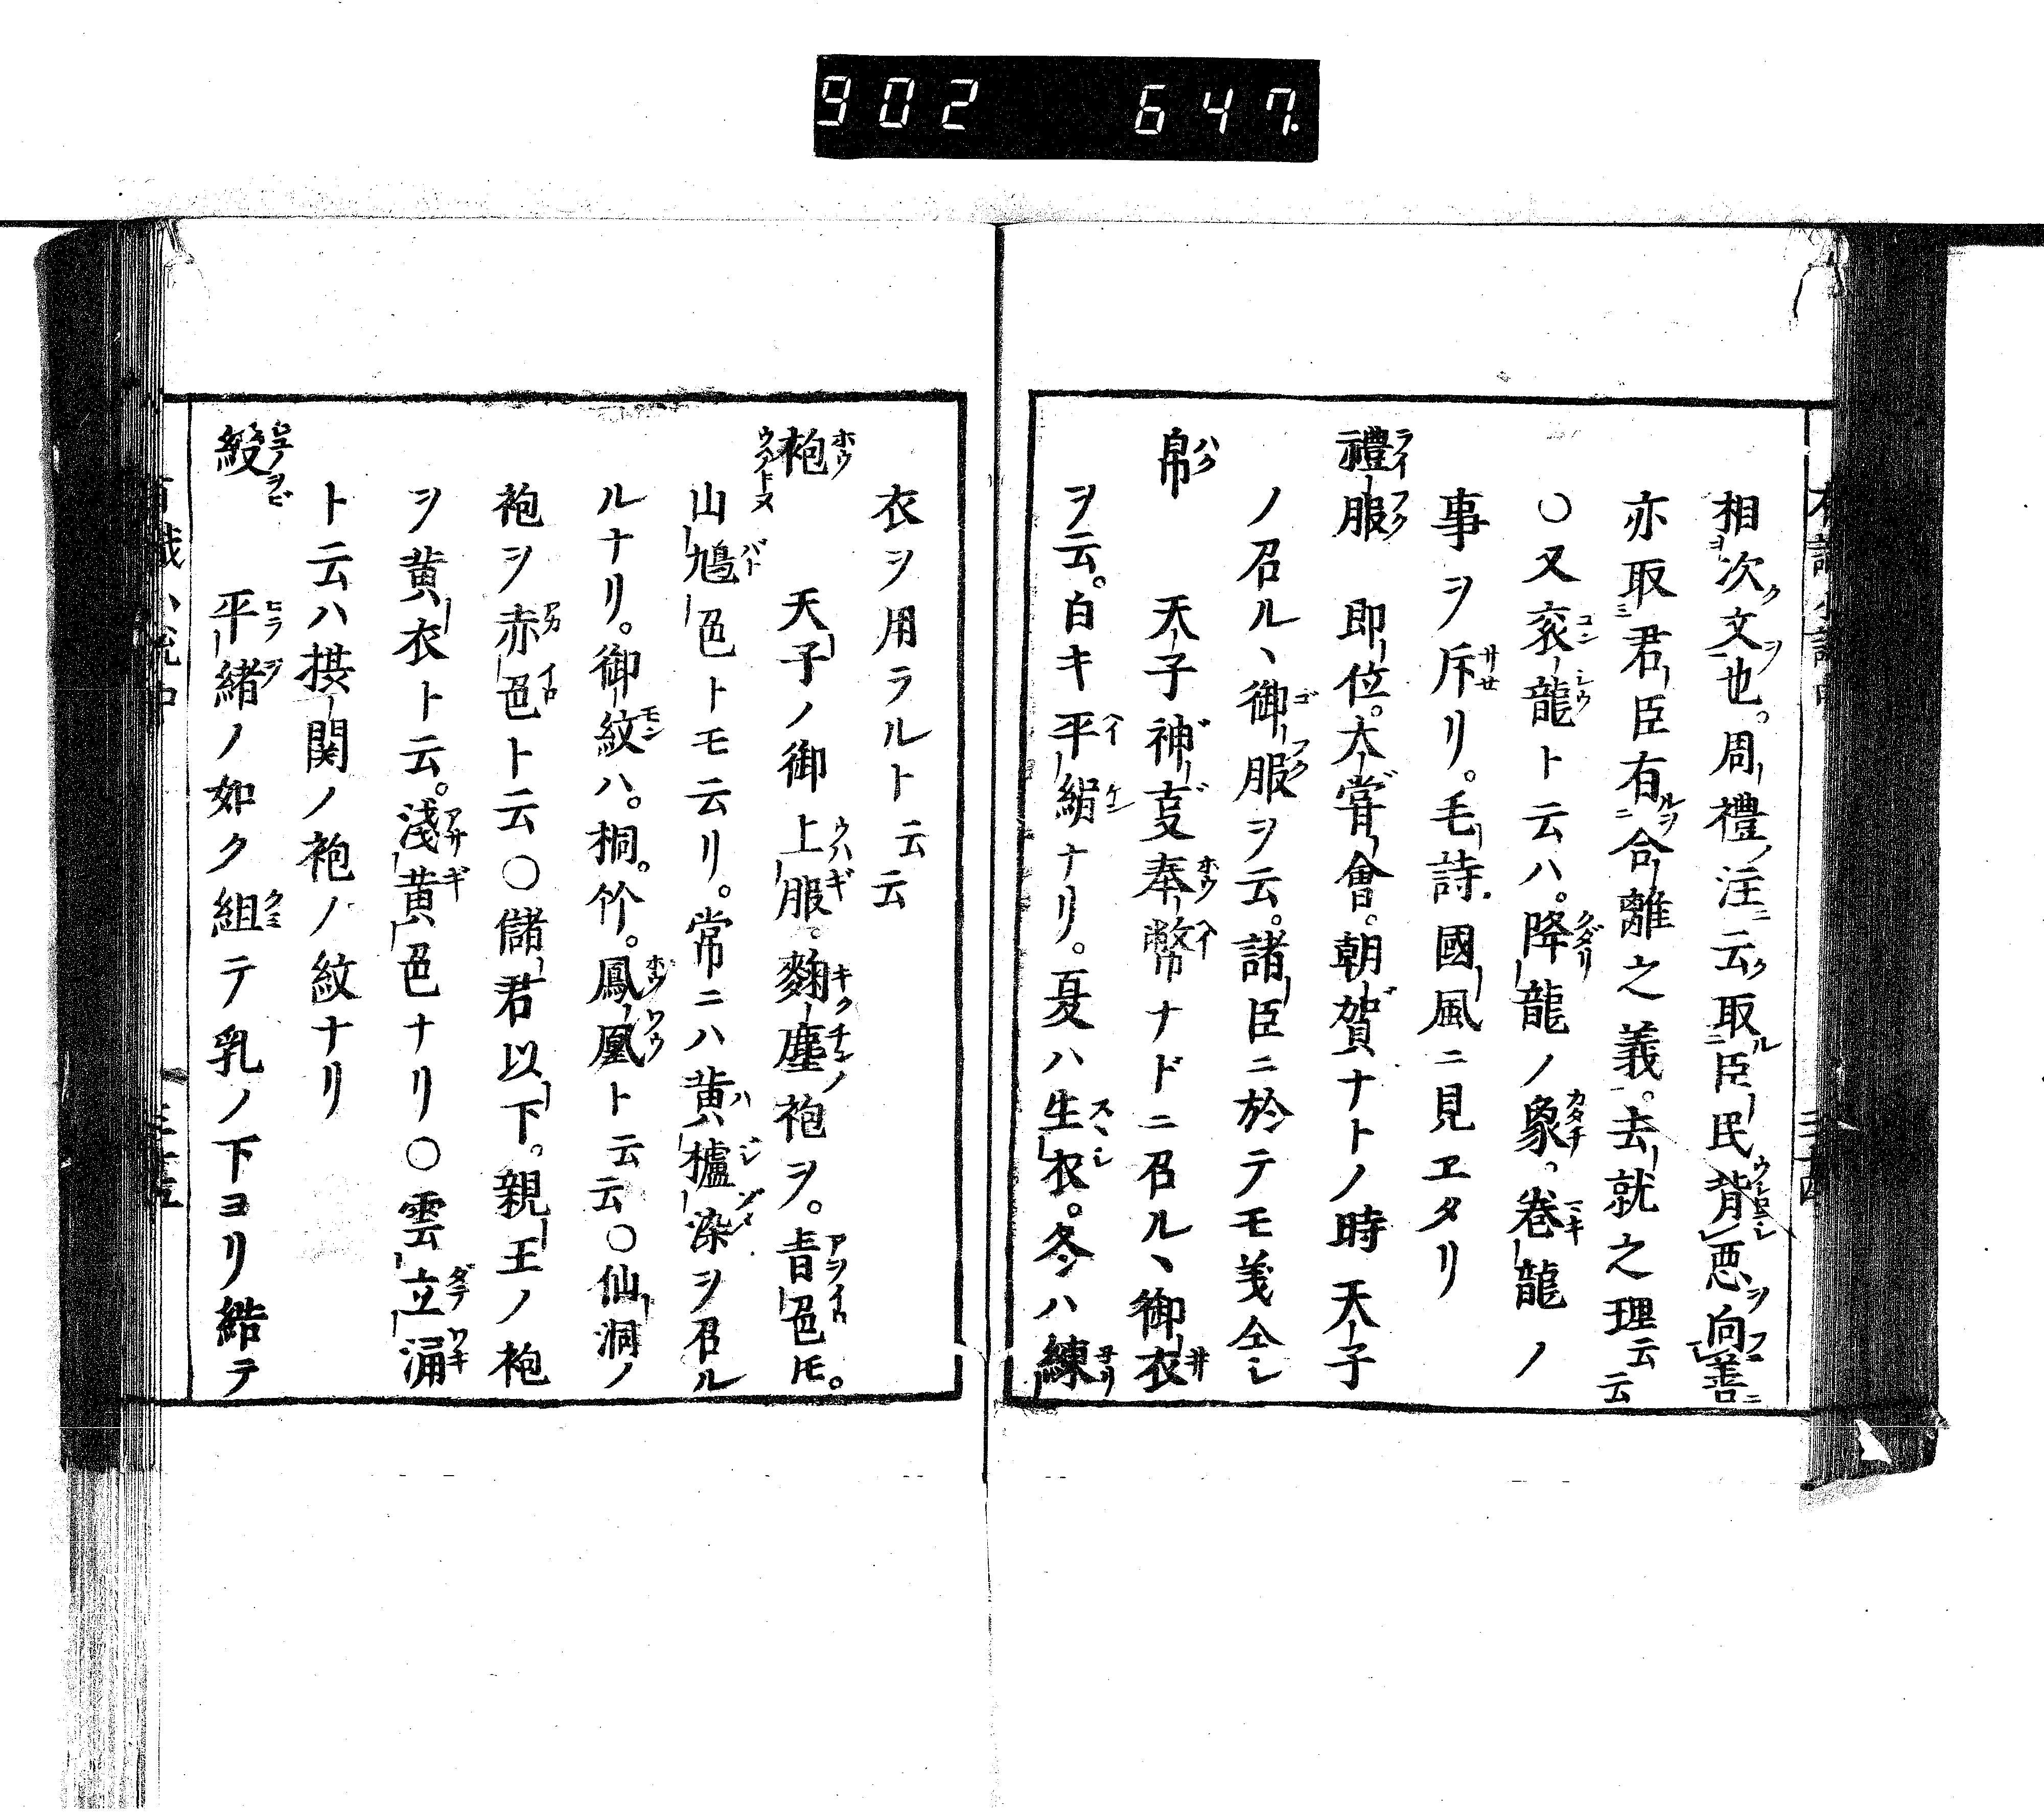 902 647
相次文也。周禮注云取臣民背惡向善
亦取君臣有合離之義。去就之理云云
〇又衮龍ト云ハ。降龍ノ象。巻龍ノ
事ヲ斥リ。毛詩國風ニ見エタリ
禮服 即位。大嘗會。朝賀ナトノ時天子
ノ召ル、御服ヲ云。諸臣ニ於テモ義仝シ
帛 天子神事奉幣ナドニ召ル、御衣
ヲ云。白キ平絹ナリ。夏ハ生衣。冬ハ練
衣ヲ用ラルト云云
袍 天子ノ御上服。麹塵ノ袍ヲ。青色𪜈。
山鳩色トモ云リ。常ニハ黄櫨染ヲ召ル
ルナリ。御紋ハ。桐。竹。鳳凰ト云云〇仙洞ノ
袍ヲ赤色ト云〇儲君以下。親王ノ袍
ヲ黄衣ト云。淺黄色ナリ〇雲立涌
ト云ハ挟関ノ袍ノ紋ナリ
緌 平緒ノ如ク組テ乳ノ下ヨリ結テ